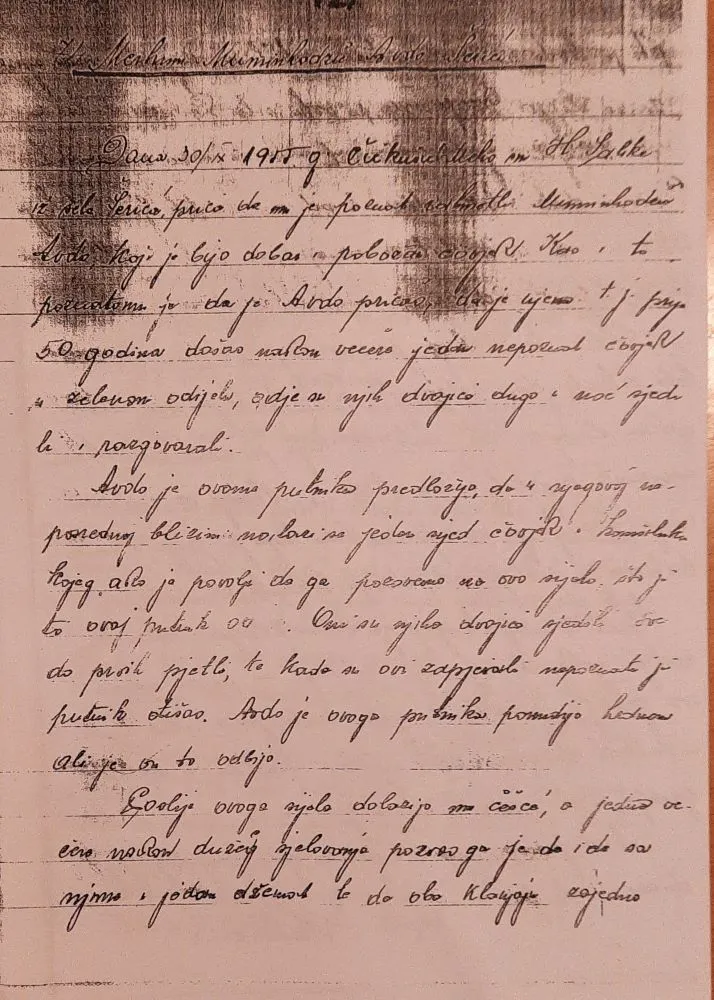 Merhum Muminhodžić Avdo Šerići
Dana 30/IX 1955 g Meho sin H. Salke
iz sela Šerića, priča da mu je poznat rahmetli Muminhodžić
Avdo, koji je bijo dobar i pobožan čovjek. Kao i to
poznato mu je da je Avdo pričao, da je njemu t.j. prije
50 godina došao nakon večere jedan nepoznat čovjek
u zelenom odijelu, gdje su njih dvojica dugo u noć sjedi
li i razgovarali.
Avdo je ovome putniku predložijo, da u njegovoj ne-
posrednoj blizini nalazi se jedan sjed čovjek i komšiluka
kojeg ako je povolji da ga pozovemo na ovo sijelo, što je
to ovaj putnik. Oni su njiha dvojica sjedili sve
do prvih pjetli, te kada su ovi zapjevali nepoznati je
putnik otišao. Avdo je ovoga putnika ponudijo
ali je on to odbijo.
Poslije ovoga sijela dolazijo mu češće, a jedno ve-
čere nakon dužeg sjelovanja pozvao ga je da ide sa
njime u jedan džemat te da oba klanjaju zajedno